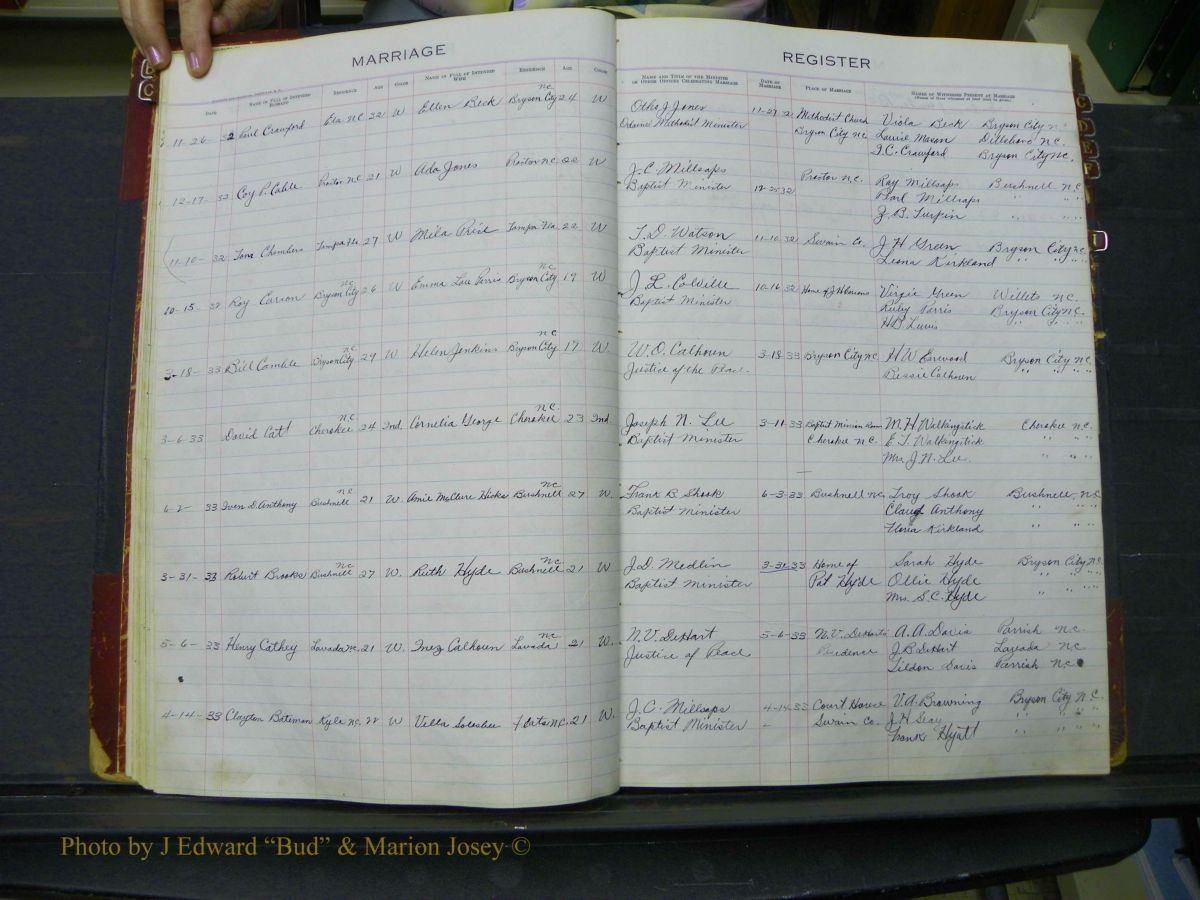 MARRIAGE REGISTER
DATE NAME IN FULL OF INTENDED HUSBAND RESIDENCE AGE COLOR NAME IN FULL OF INTENDED WIFE RESIDENCE AGE COLOR NAME AND TITLE OF THE MINISTER OR OTHER OFFICER CELEBRATING MARRIAGE DATE OF MARRIAGE PLACE OF MARRIAGE NAMES OF WITNESSES PRESENT AT MARRIAGE
N.C.
11-26-32 Paul Crawford Ela N.C. 32 W Ellen Beck Bryson City 24 W Otho J. Jones 11-27 32 Methodist Church Viola Beck Bryson City N.C.
Ordained Methodist Minister Bryson City N.C. Louise Mason Dillsboro N.C.
T.C. Crawford Bryson City N.C.
12-17-32 Coy P. Cable Proctor N.C. 21 W Ada Jones Proctor N.C. 22 W J.C. Millsaps Proctor N.C. Ray Millsaps Bushnell N.C.
Baptist Minister 12-25 32 Pearl Millsaps " " "
Z.B. Turpin " " "
11-10-32 Tom Chambers Tampa Fla 27 W Mila Price Tampa Fla. 22 W T.D. Watson 11-10 32 Swain Co. J H Green Bryson City N.C.
Baptist Minister Leona Kirkland " " " "
N.C. N.C.
10-15-32 Roy Carson Bryson City 26 W Emma Lou Parris Bryson City 19 W J.L. Colville 10-16 32 Virgie Green Willets N.C.
Baptist Minister Ruby Parris Bryson City N.C.
" " " "
N.C. N.C.
3-18-33 Bill Bryson City 29 W Helen Jenkins Bryson City 17 W. W.O. Calhoun 3-18 33 Bryson City N.C. H W Bryson City N.C.
Justice of the Peace. Bessie Calhoun " " " "
N.C. N.C.
3-6 33 David Cat Cherokee 24 Ind. Cornelia George Cherokee 23 Ind. Joseph N. Lee 3-11 33 Baptist Mission M.H Walkingstick Cherokee N.C.
Baptist Minister Cherokee N.C. E.T. Walkingstick " " "
Mrs J.N. Lee. " " "
N.C. N.C.
6-2-33 Iven D. Anthony Bushnell 21 W. Amie McClure Hicks Bushnell 27 W. Frank B Shook 6-3-33 Bushnell N.C. Troy Shook Bushnell, N.C.
Baptist Minister Claud Anthony " " "
Kirkland " " "
N.C. N.C.
3-31-33 Robert Brooks Bushnell 27 W. Ruth Hyde Bushnell 21 W J.D. Medlin 3-31 33 Home of Sarah Hyde Bryson City N.C.
Baptist Minister Pat Hyde Ollie Hyde " " " "
Mrs S.C. Hyde " " " "
N.C.
5-6-33 Henry Cathey Lavada N.C. 21 W. Inez Calhoun Lavada 21 W. N.V. DeHart 5-6 33 N.V. DeHarts A.A. Davis Parrish N.C.
Justice of Peace Residence J.B DeHart Lavada N.C.
Tildon Davis Parrish N.C.
4-14-33 Clayton Bateman Kyle N.C. 22 W Villa N.C. 21 W. J.C. Millsaps 4-14 33 Court House V.A. Browning Bryson City N.C.
Baptist Minister Swain Co. J.H Seay " " " "
Frank Hyatt " " " "
Photo by J Edward “Bud” & Marion Josey ©